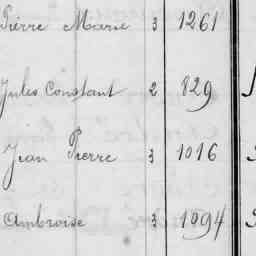 Pierre Marie 3 1261
Jules Constant 2 829
Jean Pierre 3 1016
Ambroise 3 1094